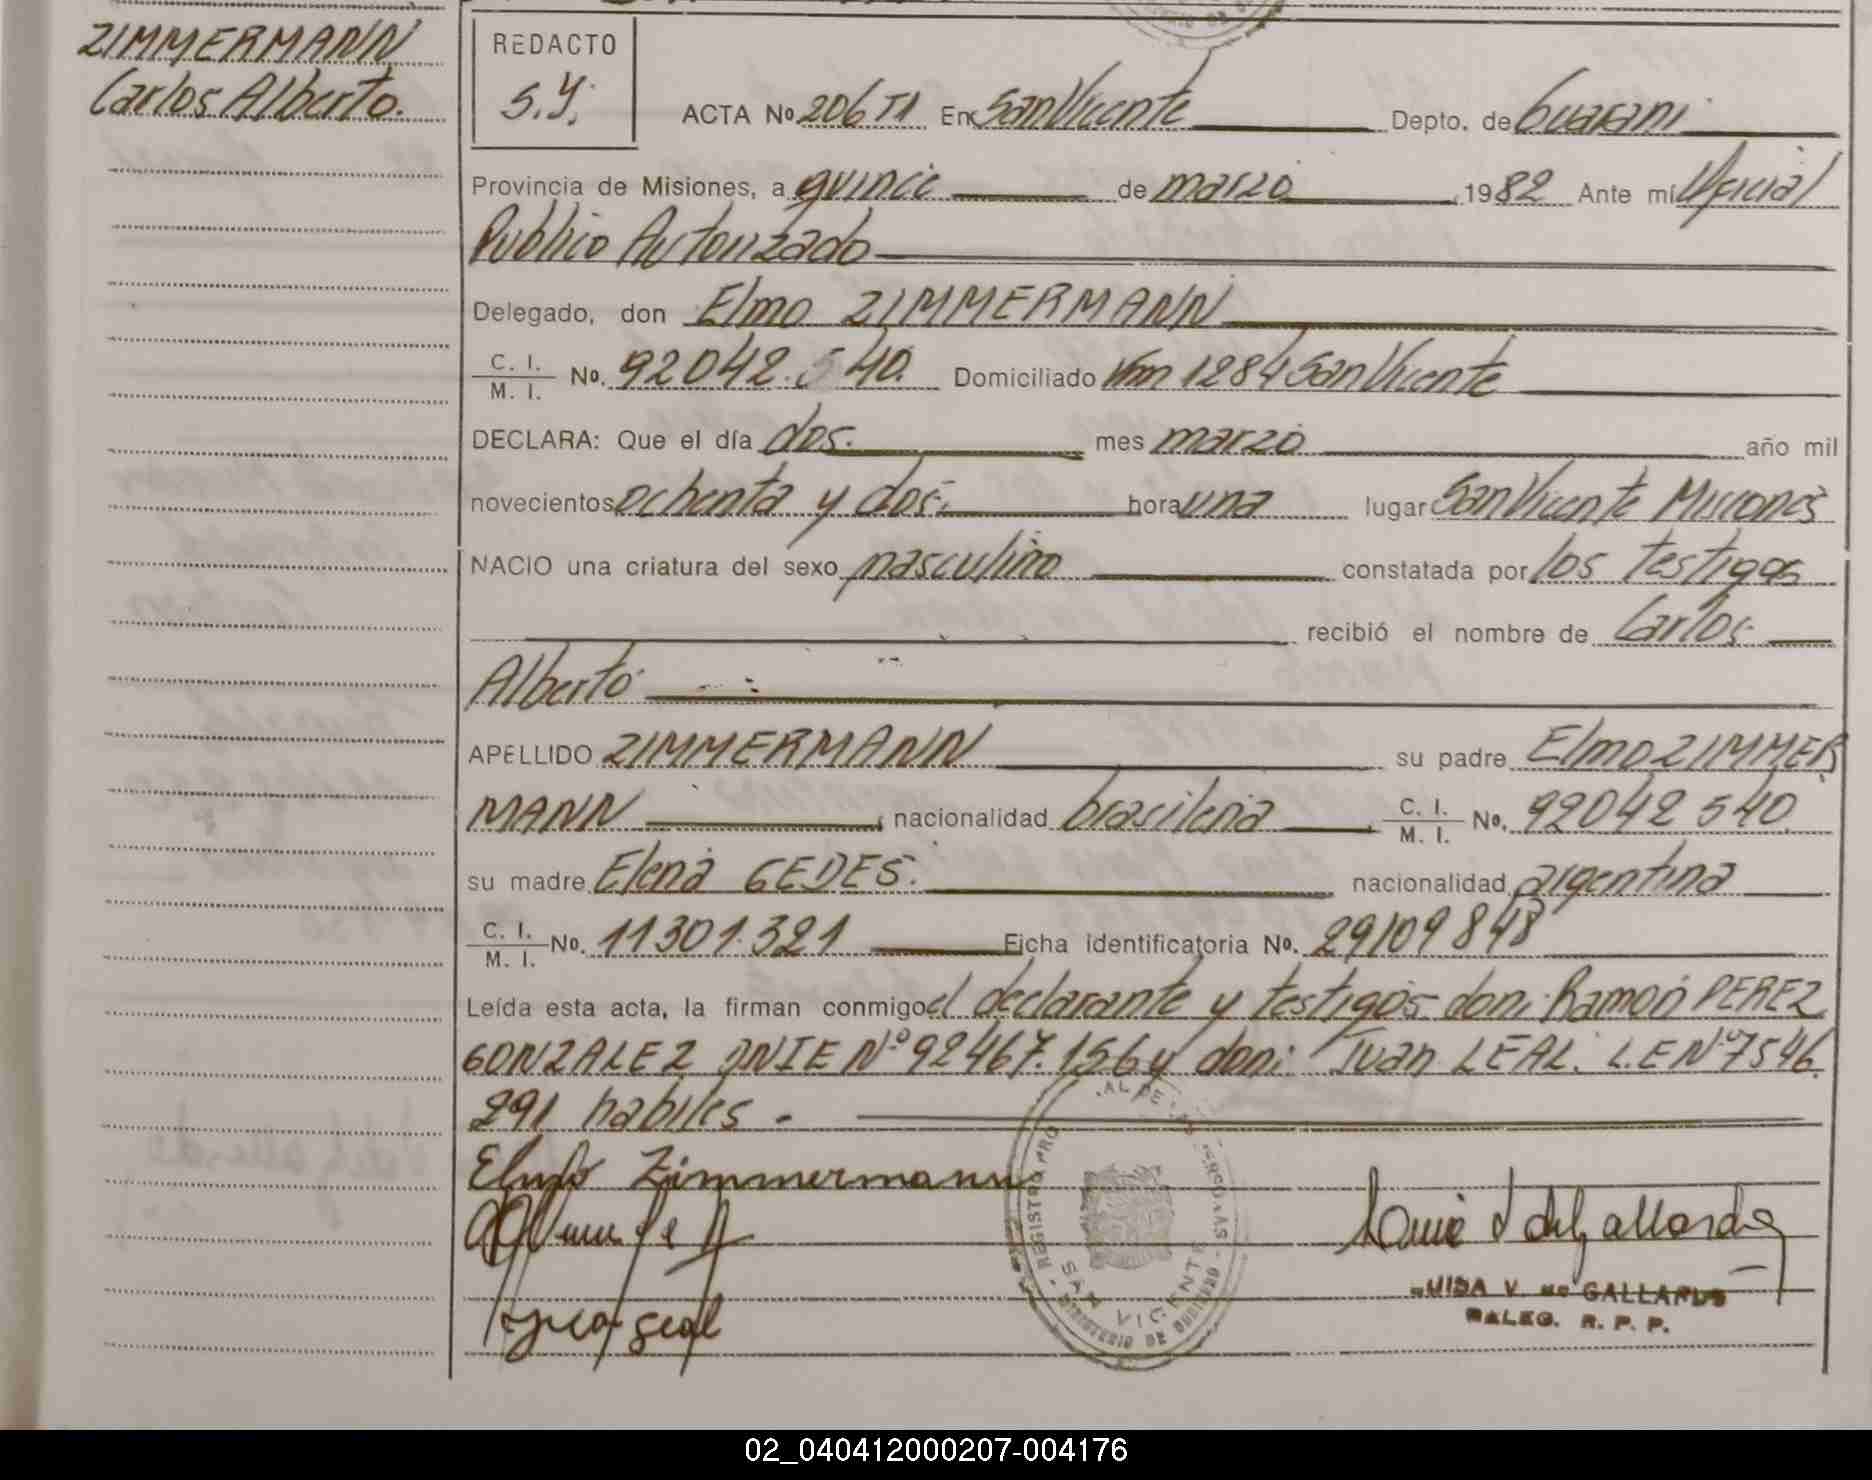 ZIMMERMANN
Carlos Alberto.
REDACTO
S.Y.
ACTA Nº 206 TI En San Vicente Depto. de Guarani
Provincia de Misiones, a quince de marzo 1982 Ante mí Oficial
Publico Autorizado
Delegado, don Elmo ZIMMERMANN
C. I. / M. I. Nº. 92042.540. Domiciliado Km 1284 San Vicente
DECLARA: Que el día dos. mes marzo año mil
novecientos ochenta y dos. hora una lugar San Vicente Misiones
NACIO una criatura del sexo masculino constatada por los testigos
recibió el nombre de Carlos
Alberto
APELLIDO ZIMMERMANN su padre Elmo ZIMMER
MANN nacionalidad brasileña C. I. / M. I. Nº. 92042540
su madre Elena GEDES. nacionalidad argentina
C. I. / M. I. Nº. 11301.321 Ficha identificatoria Nº. 29109848
Leída esta acta, la firman conmigo el declarante y testigos don: Ramón PEREZ
GONZALEZ DNIE Nº 92467.156 y don: Juan LEAL. L.E Nº 7546.
291 habiles.
Elmo Zimmermann
REGISTRO PRO
SAN VICENTE
V. de GALLARDO
R. P. P.
02_040412000207-004176